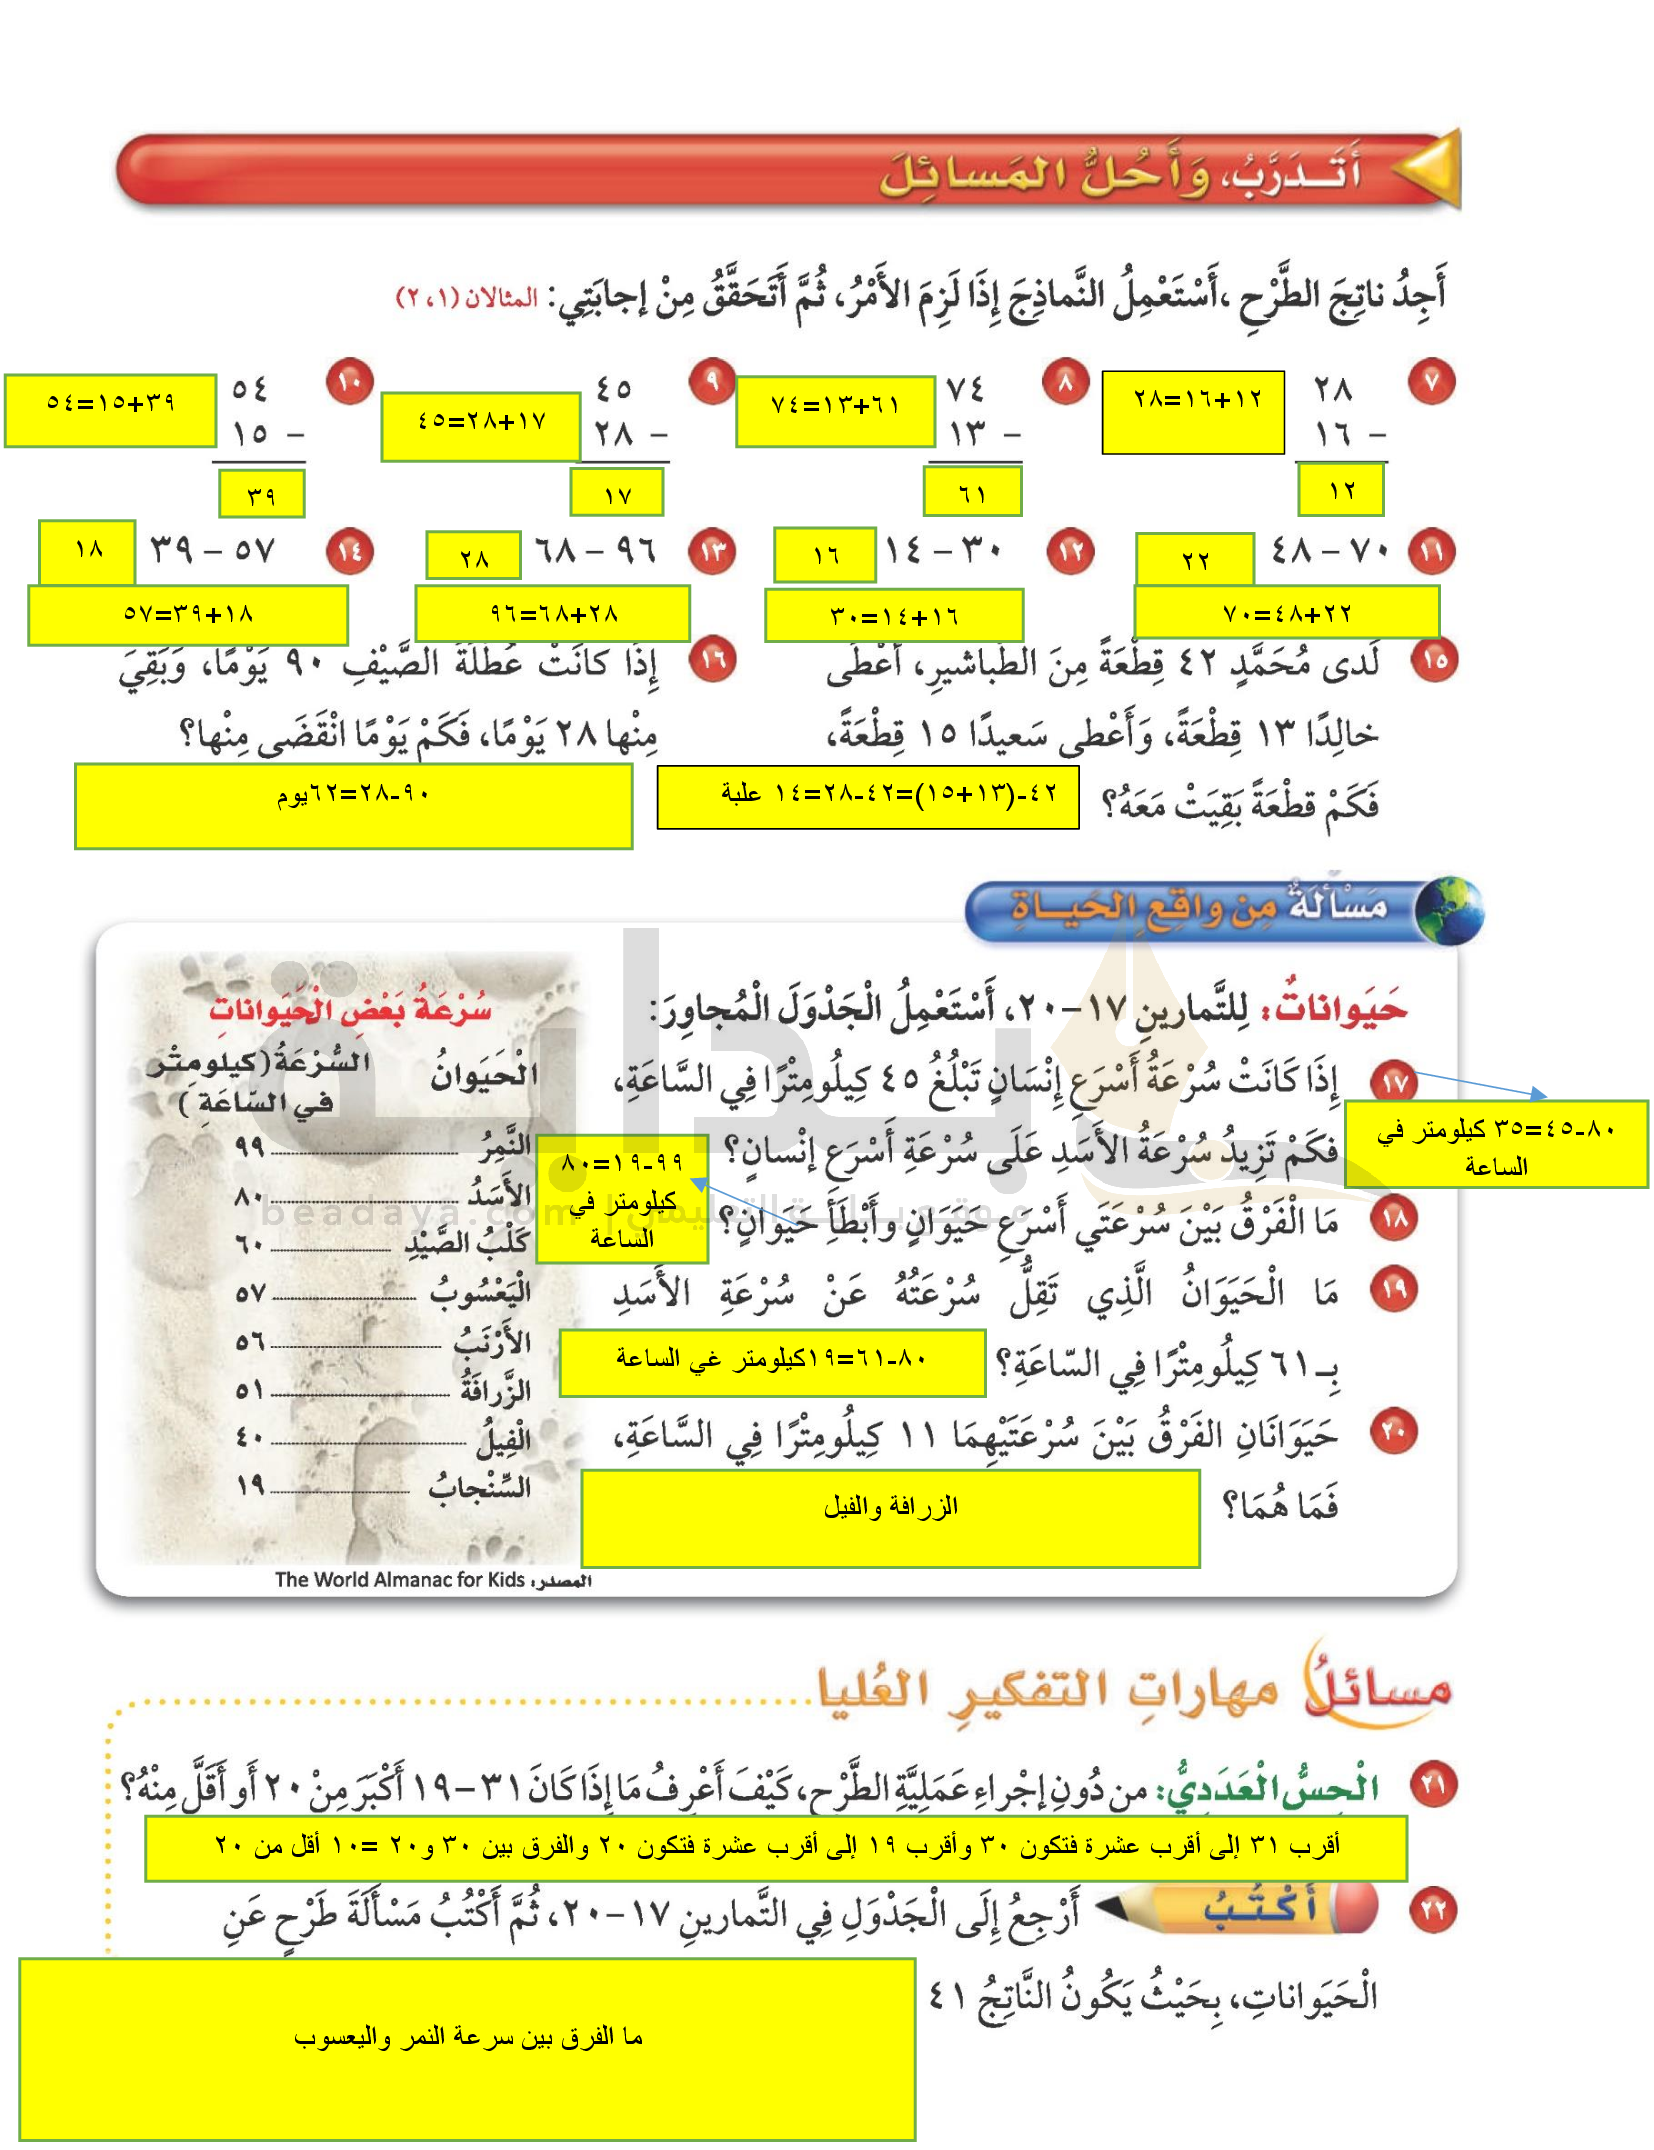 أَتَـدَرَّبُ، وَأَحُلُّ المَسائِلَ
أَجِدُ ناتِجَ الطَّرْحِ ،أَسْتَعْمِلُ النَّماذِجَ إِذَا لَزِمَ الأَمْرُ، ثُمَّ أَتَحَقَّقُ مِنْ إجابَتِي: المثالان (١، ٢)
٧
٢٨
١٦ –
١٢
١٢+١٦=٢٨
٨
٧٤
١٣ –
٦١
٦١+١٣=٧٤
٩
٤٥
٢٨ –
١٧
١٧+٢٨=٤٥
١٠
٥٤
١٥ –
٣٩
٣٩+١٥=٥٤
١١ ٧٠ – ٤٨ ٢٢
٢٢+٤٨=٧٠
١٢ ٣٠ – ١٤ ١٦
١٦+١٤=٣٠
١٣ ٩٦ – ٦٨ ٢٨
٢٨+٦٨=٩٦
١٤ ٥٧ – ٣٩ ١٨
١٨+٣٩=٥٧
١٥ لَدى مُحَمَّدٍ ٤٢ قِطْعَةً مِنَ الطَّباشيرِ، أَعْطَى
خالِدًا ١٣ قِطْعَةً، وَأَعْطى سَعيدًا ١٥ قِطْعَةً،
فَكَمْ قطْعَةً بَقِيَتْ مَعَهُ؟
٤٢-(١٣+١٥)=٤٢-٢٨=١٤ علبة
١٦ إِذَا كانَتْ عُطْلَةُ الصَّيْفِ ٩٠ يَوْمًا، وَبَقِيَ
مِنْها ٢٨ يَوْمًا، فَكَمْ يَوْمًا انْقَضَى مِنْها؟
٩٠-٢٨=٦٢يوم
مَسْأَلَةٌ مِن واقِعِ الحَيـاةِ
حَيَواناتٌ: لِلتَّمارينِ ١٧–٢٠، أَسْتَعْمِلُ الْجَدْوَلَ الْمُجاوِرَ:
١٧ إِذَا كَانَتْ سُرْعَةُ أَسْرَعِ إِنْسَانٍ تَبْلُغُ ٤٥ كِيلُومِتْرًا فِي السَّاعَةِ،
فكَمْ تَزِيدُ سُرْعَةُ الأَسَدِ عَلَى سُرْعَةِ أَسْرَعِ إنْسانٍ؟
٨٠-٤٥=٣٥ كيلومتر في
الساعة
١٨ مَا الْفَرْقُ بَيْنَ سُرْعَتَي أَسْرَعِ حَيَوَانٍ وأَبْطَأَ حَيَوانٍ؟
٩٩-١٩=٨٠
كيلومتر في
الساعة
١٩ مَا الْحَيَوَانُ الَّذِي تَقِلُّ سُرْعَتُهُ عَنْ سُرْعَةِ الأَسَدِ
بِـ ٦١ كِيلُومِتْرًا فِي السّاعَةِ؟
٨٠-٦١=١٩كيلومتر غي الساعة
٢٠ حَيَوَانَانِ الفَرْقُ بَيْنَ سُرْعَتَيْهِمَا ١١ كِيلُومِتْرًا فِي السَّاعَةِ،
فَمَا هُمَا؟
الزرافة والفيل
سُرْعَةُ بَعْضِ الْحَيَواناتِ
الْحَيَوانُ السُّرْعَةُ(كيلومِتْر
في السّاعَةِ )
النَّمِرُ ٩٩
الأَسَدُ ٨٠
كَلْبُ الصَّيْدِ ٦٠
الْيَعْسُوبُ ٥٧
الأَرْنَبُ ٥٦
الزَّرافَةُ ٥١
الْفِيلُ ٤٠
السِّنْجابُ ١٩
المصدر: The World Almanac for Kids
بداية
موقع بداية التعليمي | beadaya.com
مسائلُ مهاراتِ التفكيرِ العُليا
٢١ الْحِسُّ الْعَدَدِيُّ: من دُونِ إجْراءِ عَمَلِيَّةِ الطَّرْحِ، كَيْفَ أَعْرِفُ مَا إِذَا كَانَ ٣١–١٩ أَكْبَرَ مِنْ ٢٠ أَو أَقَلَّ مِنْهُ؟
أقرب ٣١ إلى أقرب عشرة فتكون ٣٠ وأقرب ١٩ إلى أقرب عشرة فتكون ٢٠ والفرق بين ٣٠ و٢٠ =١٠ أقل من ٢٠
٢٢ أَكْتُـبُ أَرْجِعُ إِلَى الْجَدْوَلِ فِي التَّمارينِ ١٧–٢٠، ثُمَّ أَكْتُبُ مَسْأَلَةَ طَرْحٍ عَنِ
الْحَيَواناتِ، بِحَيْثُ يَكُونُ النَّاتِجُ ٤١
ما الفرق بين سرعة النمر واليعسوب